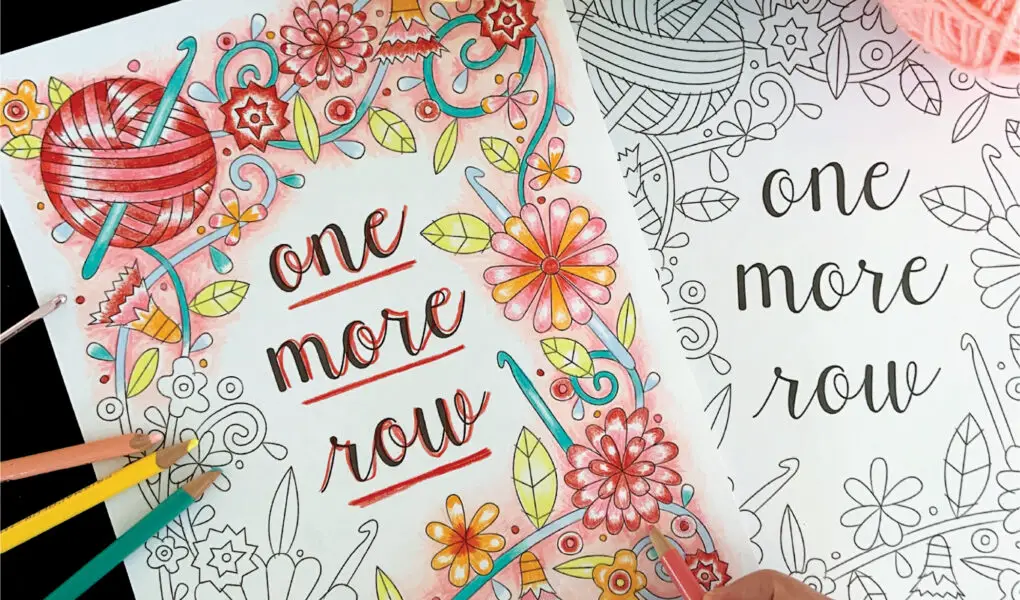 one
more
row
one
more
row